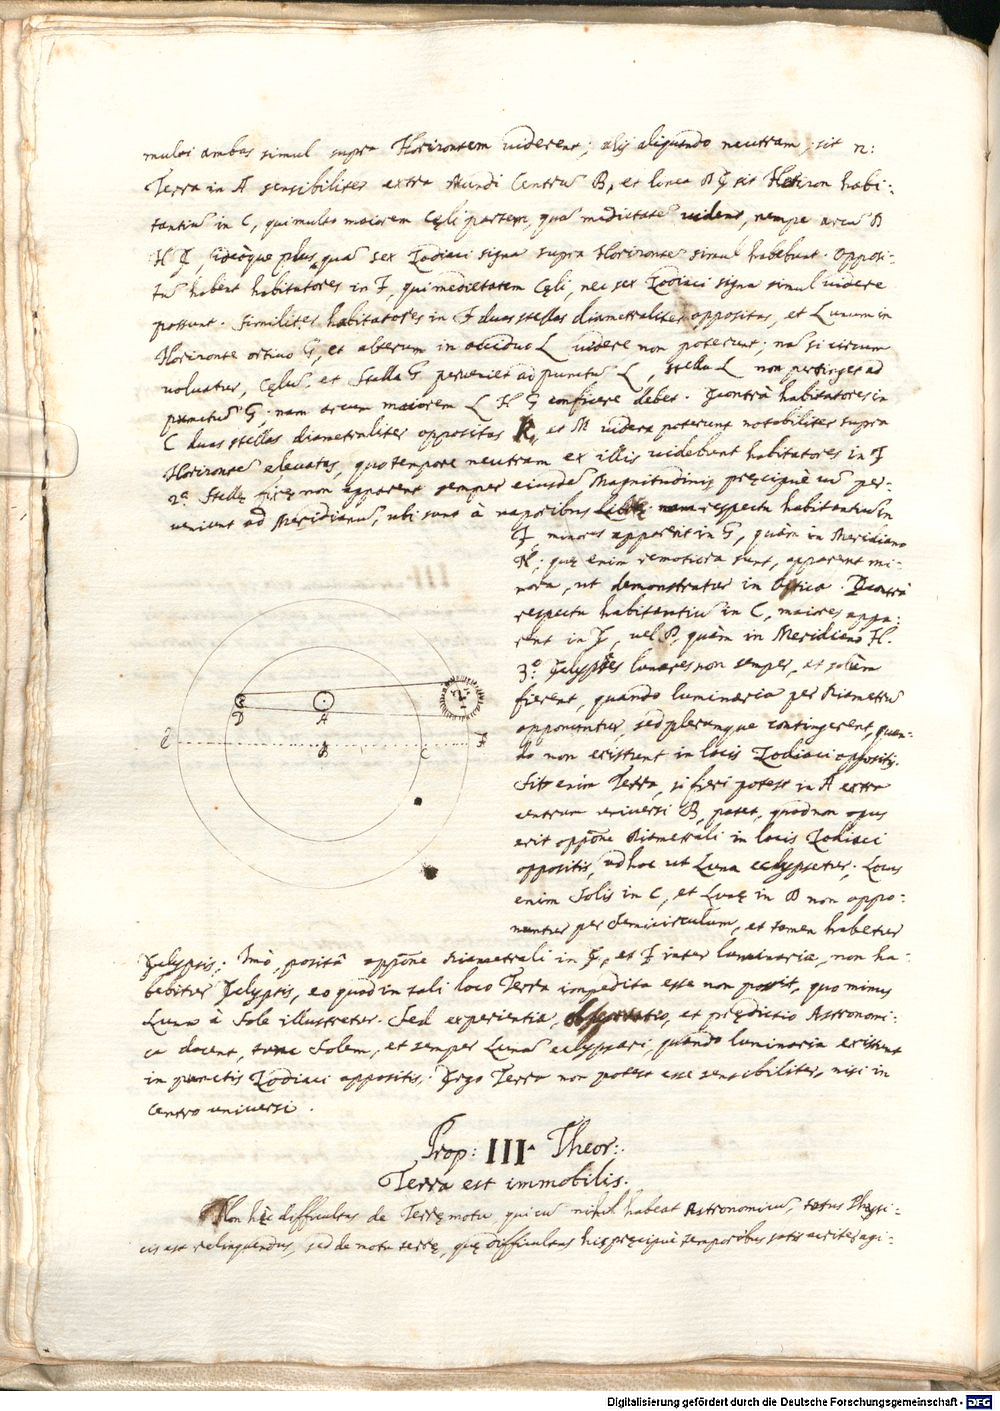 multoi ambas simul supra Horizontem viderent; alij aliquando neutram; sit n:
Terra in A sensibiliter extra Mundi Centrũ B, et linea D F sit Horizon habi:
tantiũ in C, qui multo maiorem Cęli partem, quã medietatẽ vident, nempe arcũ D
H F, ideòque plus quã sex Zodiaci signa supra Horizontẽ simul habebunt. Opposi:
tũ habent habitatores in F, qui medietatem Cęli, nec sex Zodiaci signa simul videre
possunt. Similiter habitatores in F duas stellas diametraliter oppositas, et Lunam in
Horizonte ortiuo G, et alteram in occiduo L videre non poterunt; nã si circum
voluatur, Cęlũ, et Stella G perueniet ad punctũ L, stella L non pertinget ad
punctũ G. nam arcum maiorem L H G conficere debet. E contrà habitatores in
C duas stellas diametraliter oppositas K, et M videre poterunt notabiliter supra
Horizontẽ eleuatas, quo tempore neutram ex illis videbunt habitatores in F
2.º Stellę fixę non apparent semper eiusdẽ Magnitudinis pręcipuè cũ per:
ueniunt ad Meridianũ, ubi sunt à vaporibus nam respectu habitantiũ in
F, minores apparent in G, quàm in Meridiano
H; quę enim remotiora sunt, apparent mi:
nora, ut demonstratur in Optica. E contrà
respectu habitantiũ in C, maiores appa:
rent in F, vel D, quàm in Meridiano H.
3.º Eclypses lunares non semper, et solùm
fierent, quando luminaria per Diametrũ
opponuntur, sed plerumque contingerent, quan:
do non existunt in locis Zodiaci oppositis.
Sit enim Terra, si fieri potest in A extra
centrum universi B, patet, quod non opus
erit oppõne Diametrali in locis Zodiaci
oppositis, ad hoc ut Luna eclypsetur. Locus
enim Solis in C, et Lunę in D non appo:
nuntur per semicirculum, et tamen habetur
Eclypsis; Imò, positâ oppõne diametrali in E, et F inter luminaria, non ha:
bebitur Eclypsis, eo quod in tali loco Terra impedita esse non possit, quo minus
Luna à Sole illustretur. Sed experientia, obseruatio, et prędictio Astronomi:
ca docent, tunc Solem, et semper Lunã eclypsari, quando luminaria existunt
in punctis Zodiaci oppositis; Ergo Terra non potest esse sensibiliter, nisi in
centro universi.
D A E B C F
Prop: III.ª Theor:.
Terra est immobilis.
Non hic difficultas de Terręmotu qui cũ nihil habeat Astronomicũ, totus Physi:
cis est relinquendus, sed de motu terrę, quę difficultas his pręcipuè temporibus satis acriter agi:
Digitalisierung gefördert durch die Deutsche Forschungsgemeinschaft - DFG